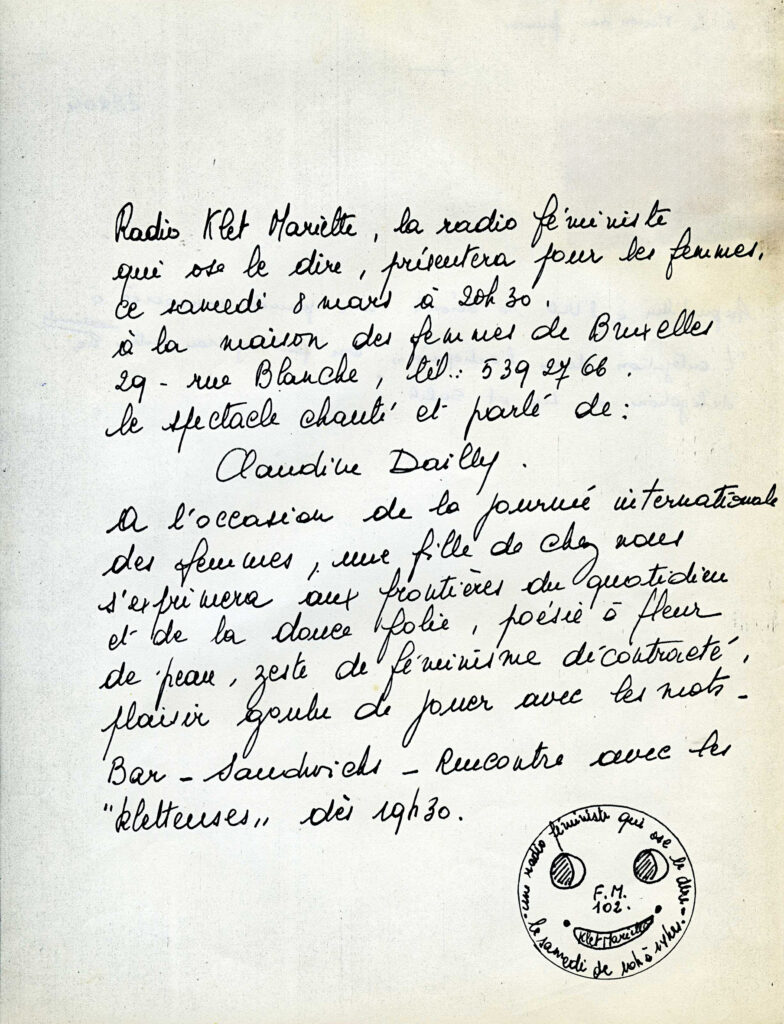 Radio Klet Mariette, la radio féministe
qui ose le dire, présentera pour les femmes,
ce samedi 8 mars à 20h30,
à la maison des femmes de Bruxelles
29 - rue Blanche, tél.: 539 27 66.
le spectacle chanté et parlé de :
Claudine Dailly.
A l'occasion de la journée internationale
des femmes, une fille de chez nous
s'exprimera aux frontières du quotidien
et de la douce folie, poésie à fleur
de peau, zeste de féminisme décontracté,
plaisir goulu de jouer avec les mots -
Bar - Sandwichs - Rencontre avec les
"klettenses" dès 19h30.
une radio féministe qui ose le dire.
F.M.
102.
Klet Mariette
le samedi de